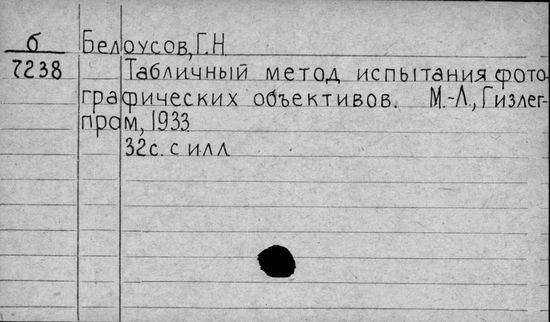 б Белоусов, Г.Н
7238 Табличный метод испытания фото-
графических объективов. М.-Л., Гизлег-
пром, 1933
32с. с илл